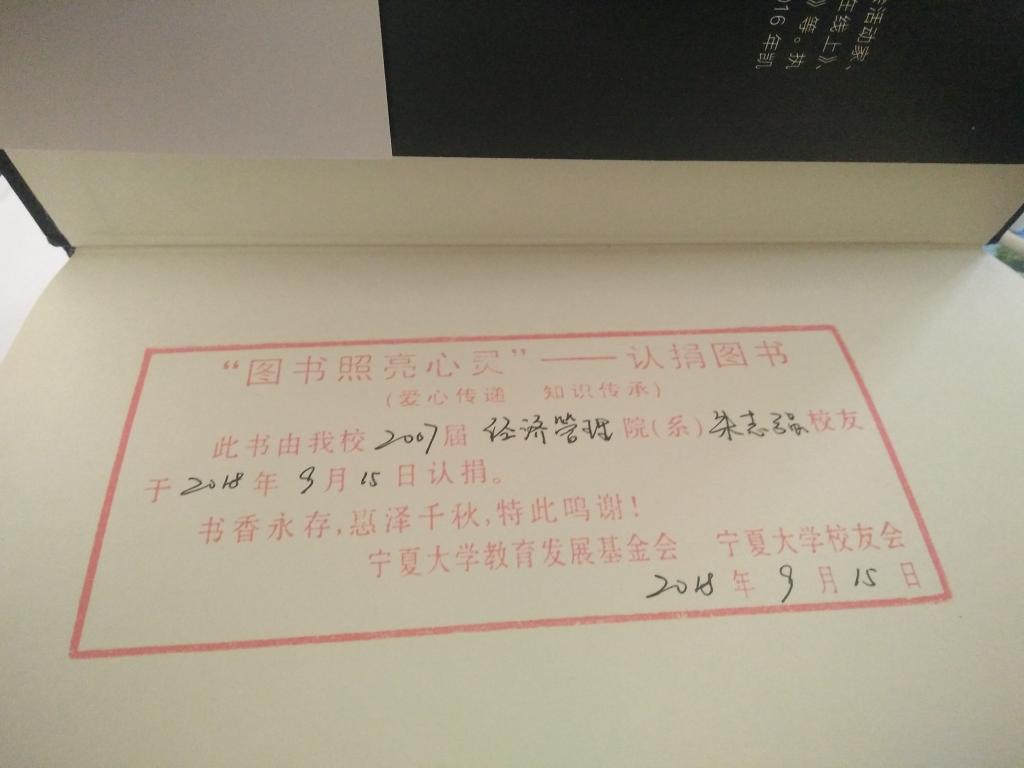 活动家、
在线上》、
》等。执
016 年凯
“图书照亮心灵”——认捐图书
（爱心传递 知识传承）
此书由我校2007届 经济管理 院（系）朱志强校友
于2018年 9月15日认捐。
书香永存，惠泽千秋，特此鸣谢！
宁夏大学教育发展基金会 宁夏大学校友会
2018 年 9 月 15 日